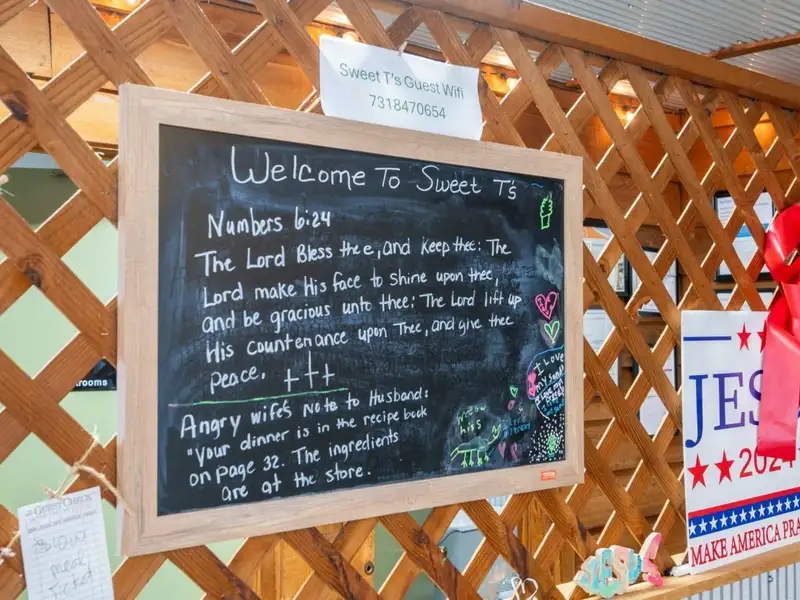 Sweet T's Guest Wifi
7318470654
Welcome To Sweet T's
Numbers 6:24
The Lord Bless thee, and keep thee: The
Lord make His face to Shine upon thee,
and be gracious unto thee: The Lord lift up
His countenance upon Thee, and give thee
peace.
Angry wife's Note to Husband:
"Your dinner is in the recipe book
on page 32. The ingredients
are at the store.
I Love
my
meow
hiss
rooms
Guest Check
meal
ticket
JES
2024
MAKE AMERICA PRA